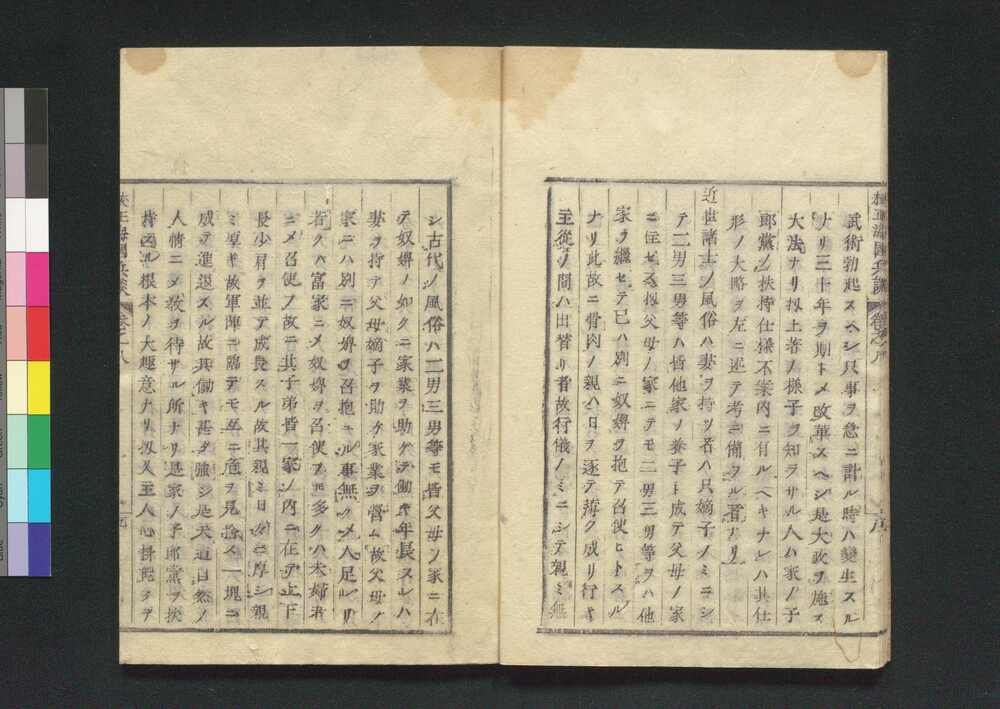 武術勃起スヘシ只事ヲ急ニ計ル時ハ變生スル
ナリ三十年ヲ期トメ改革スヘシ是大政ヲ施ス
大法ナリ扨土着ノ様子ヲ知ラサル人ハ家ノ子
郎黨ノ扶持仕樣不案内ニ有ルヘキナレハ其仕
形ノ大略ヲ左ニ述テ考ニ備フル者ナリ
近世諸士ノ風俗ハ妻ヲ持ツ者ハ只嫡子ノミニシ
テ二男三男等ハ皆他家ノ養子ト成テ父母ノ家
ニ住セス扨父母ノ家ニテモ二男三男等ヲハ他
家ヲ繼セテ已ハ別ニ奴婢ヲ抱テ召使ヒトスル
ナリ此故ニ骨肉ノ親ハ日ヲ逐テ薄ク成リ行キ
主從ノ間ハ出替リ者故行儀ノミニシテ親ミ無
シ古代ノ風俗ハ二男三男等モ皆父母ノ家ニ在
テ奴婢ノ如クニ家業ヲ助ケテ働キ年長スレハ
妻ヲ持テ父母嫡子ヲ助ケ家業ヲ營ム故父母ノ
家ニハ別ニ奴婢ヲ召抱ユル事無クメ人足レリ
若クハ富家ニメ奴婢ヲ召使フモ多クハ夫婦者
ニメ召使フ故ニ其子弟皆一家ノ内ニ在テ上下
長少肩ヲ並テ成長スル故其親ミ日々ニ厚シ親
ミ厚キ故軍陣ニ臨テモ卒ニ危ヲ見捨ス一塊ニ
成テ進退スル故其働キ甚タ強シ是天道自然ノ
人情ニメ敎ヲ待サル所ナリ是家ノ子郎黨ヲ扶
持スル根本ノ大趣意ナリ扨又主人心掛能シテ